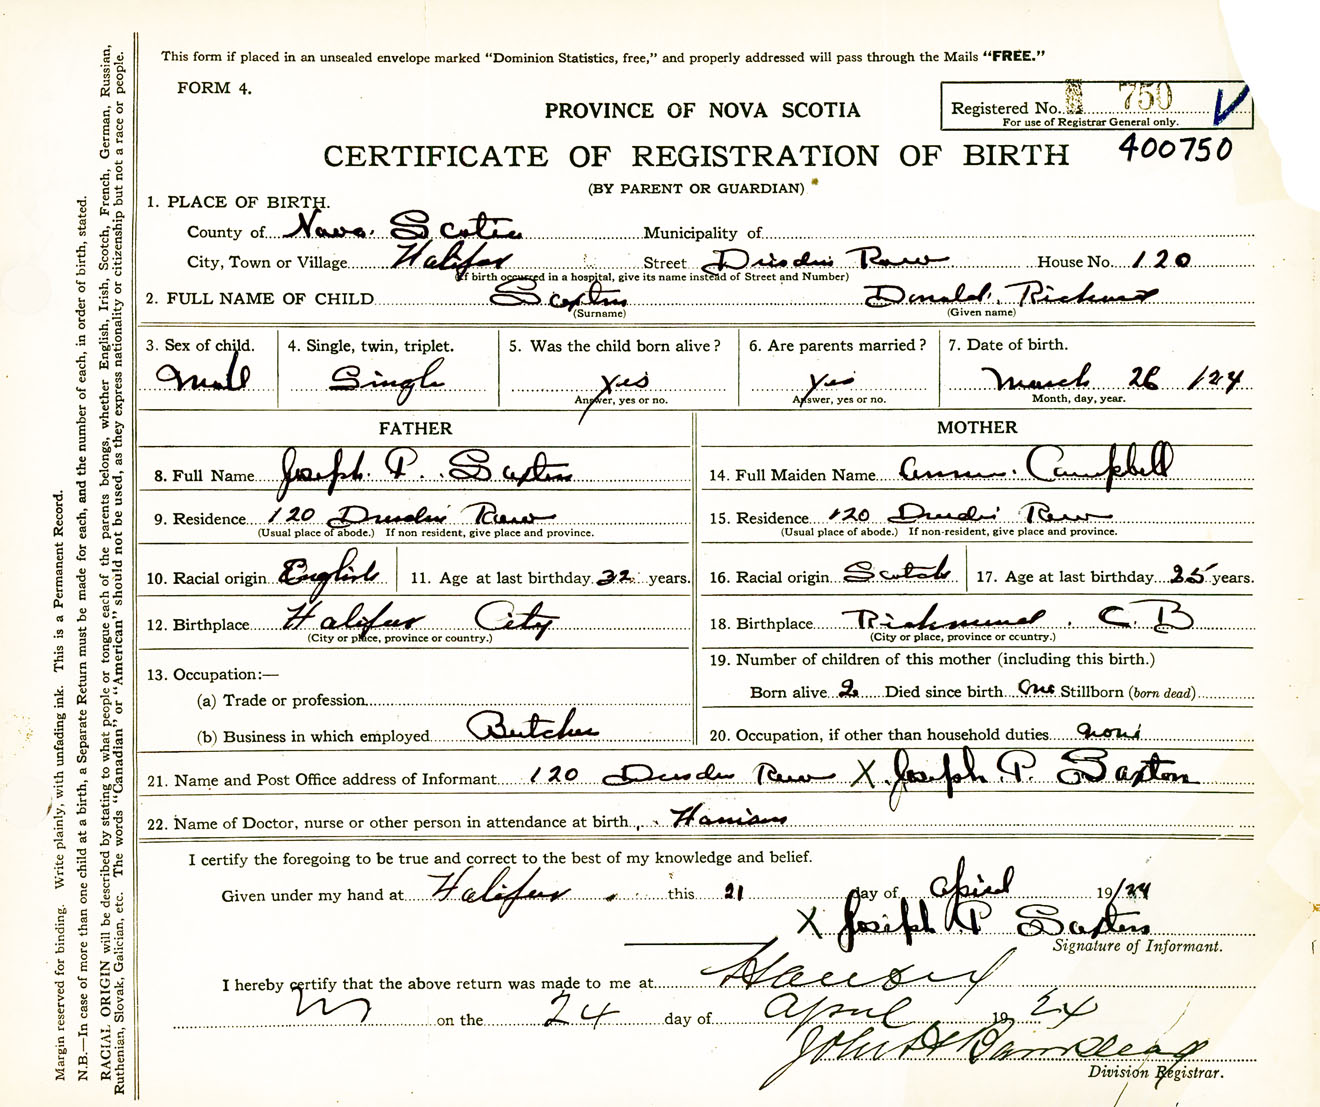 This form if placed in an unsealed envelope marked "Dominion Statistics, free," and properly addressed will pass through the Mails "FREE."
FORM 4.
Registered No. 750
For use of Registrar General only.
PROVINCE OF NOVA SCOTIA
400750
CERTIFICATE OF REGISTRATION OF BIRTH
(BY PARENT OR GUARDIAN)
1. PLACE OF BIRTH.
County of Nova Scotia Municipality of
City, Town or Village Halifax Street Row House No. 120
(If birth occurred in a hospital, give its name instead of Street and Number)
2. FULL NAME OF CHILD Saxton Donald Richard
(Surname) (Given name)
3. Sex of child. 4. Single, twin, triplet. 5. Was the child born alive? 6. Are parents married? 7. Date of birth.
Male Single Yes Yes March 26 124
Answer, yes or no. Answer, yes or no. Month, day, year.
FATHER MOTHER
8. Full Name Joseph P. Saxton 14. Full Maiden Name Campbell
9. Residence 120 Row 15. Residence 120 Row
(Usual place of abode.) If non resident, give place and province. (Usual place of abode.) If non-resident, give place and province.
10. Racial origin English 11. Age at last birthday 32 years. 16. Racial origin Scotch 17. Age at last birthday 25 years.
12. Birthplace Halifax City 18. Birthplace Richmond C. B
(City or place, province or country.) (City or place, province or country.)
13. Occupation:— 19. Number of children of this mother (including this birth.)
(a) Trade or profession Born alive 2 Died since birth one Stillborn (born dead)
(b) Business in which employed Butcher 20. Occupation, if other than household duties none
21. Name and Post Office address of Informant 120 Row X Joseph P. Saxton
22. Name of Doctor, nurse or other person in attendance at birth
I certify the foregoing to be true and correct to the best of my knowledge and belief.
Given under my hand at Halifax this 21 day of April 19/24
X Joseph P Saxton
Signature of Informant.
I hereby certify that the above return was made to me at
on the 24 day of April 19 24
John
Division Registrar.
Margin reserved for binding. Write plainly, with unfading ink. This is a Permanent Record.
N.B.—In case of more than one child at a birth, a Separate Return must be made for each, and the number of each, in order of birth, stated.
RACIAL ORIGIN will be described by stating to what people or tongue each of the parents belongs, whether English, Irish, Scotch, French, German, Russian,
Ruthenian, Slovak, Galician, etc. The words "Canadian" or "American" should not be used, as they express nationality or citizenship but not a race or people.